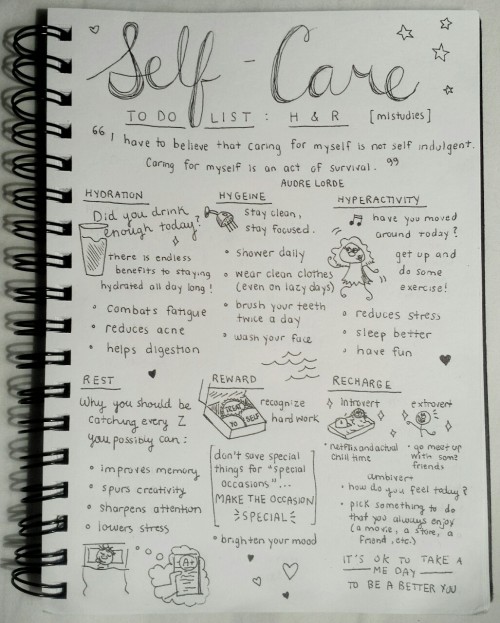 Self-Care
TO DO LIST: H & R [mlstudies]
"I have to believe that caring for myself is not self indulgent.
Caring for myself is an act of survival."
AUDRE LORDE
HYDRATION
Did you drink
enough today?
There is endless
benefits to staying
hydrated all day long!
• combats fatgue
• reduces acne
• helps digestion
HYGEINE
stay clean,
stay focused.
• shower daily
• wear clean clothes
(even on lazy days)
• brush your teeth
twice a day
• wash your face
HYPERACTIVITY
have you moved
around today?
get up and
do some
exercise!
• reduces stress
• sleep better
• have fun
REST
Why you should be
catching every Z
you possibly can:
• improves memory
• spurs creativity
• sharpens attention
• lowers stress
A+
REWARD
TREAT
YO SELF
recognize
hard work
[don't save special
things for "special
occasions"...
MAKE THE OCCASION
SPECIAL]
• brighten your mood
RECHARGE
introvert
• netflix and actual
chill time
extrovert
• go meet up
with some
friends
ambivert
• how do you feel today?
• pick something to do
that you always enjoy
(a movie, a store, a
friend, etc.)
IT'S OK TO TAKE A
ME DAY
TO BE A BETTER YOU